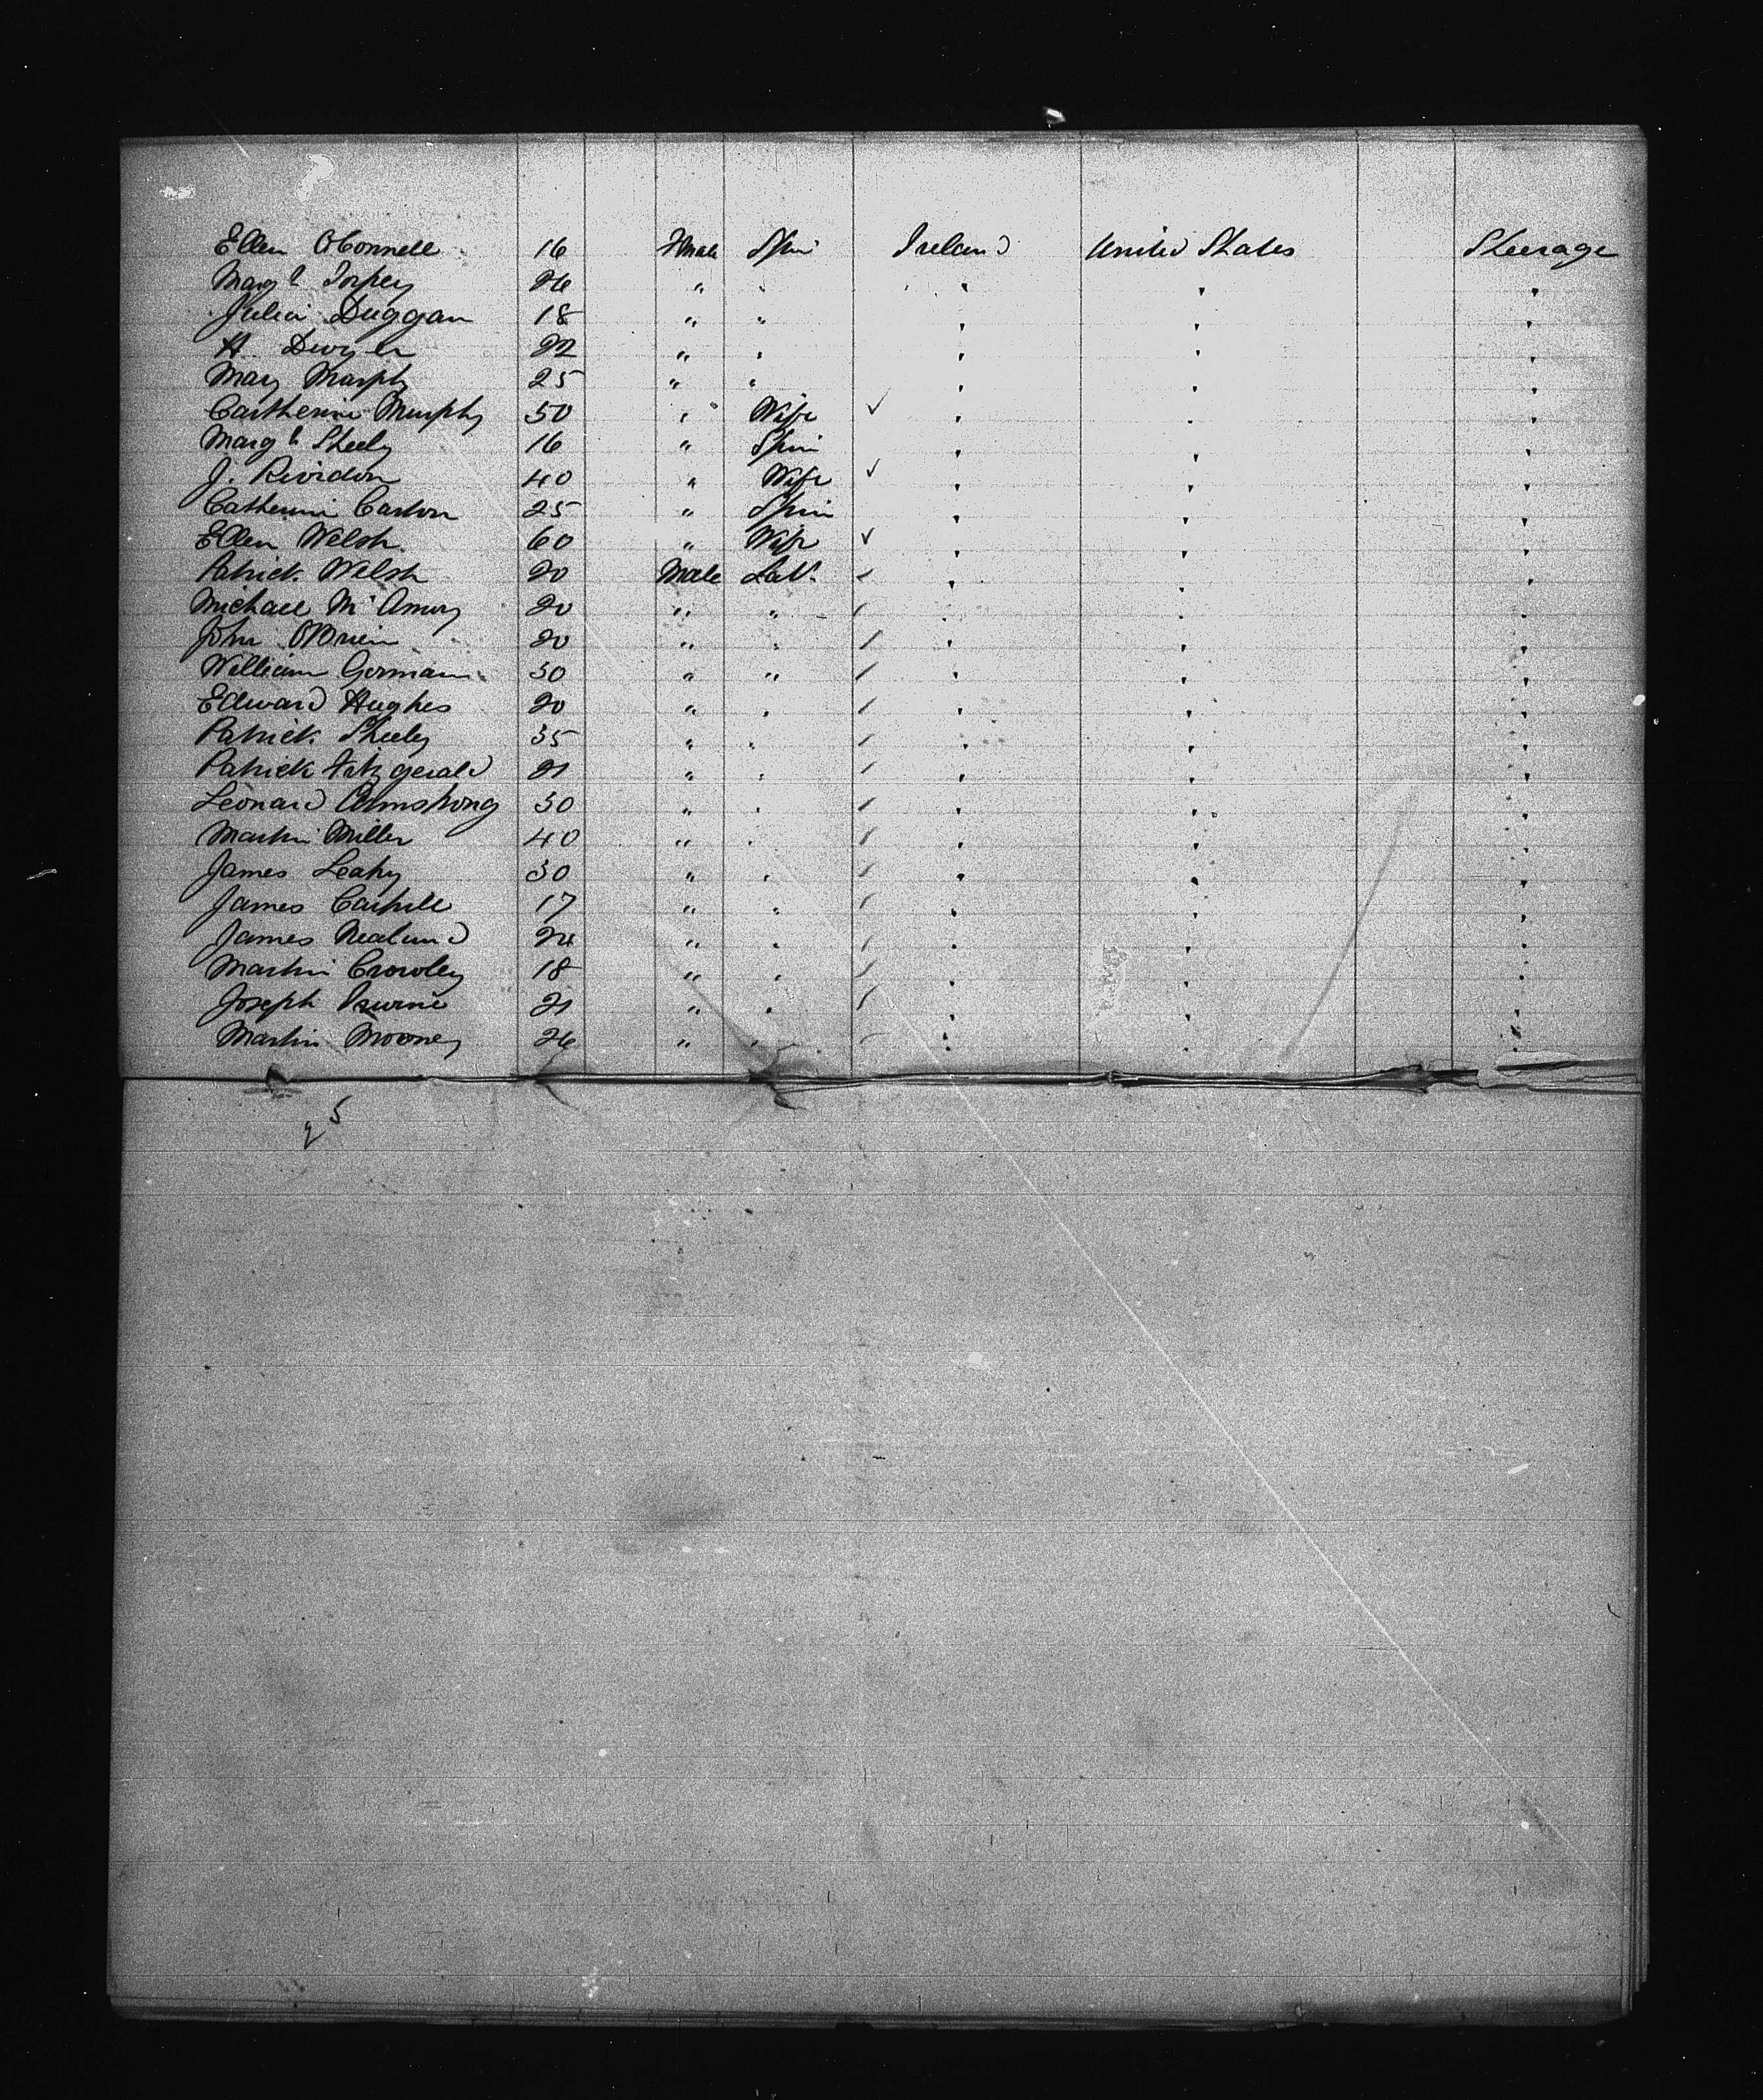 Ellen OConnell 16 Female Spin Ireland United States Steerage
Margt Torpey 26 " " " " "
Julia Duggan 18 " " " " "
H. Dwyer 22 " " " " "
Mary Murphy 25 " " " " "
Cartherine Murphy 50 " Wife ✓ " " "
Margt Sheely 16 " Spin " " "
J. Rivordon 40 " Wife ✓ " " "
Catherine Carlon 25 " Spin " " "
Ellen Welsh 60 " Wife ✓ " " "
Patrick Welsh 20 Male Labr " " "
Michael Mc 20 " " " " "
John OBrien 20 " " " " "
William Gorman 30 " " " " "
Edward Hughes 20 " " " " "
Patrick Sheely 35 " " " " "
Patrick Fitzgerald 21 " " " " "
Leonard Armstrong 30 " " " " "
Martin Miller 40 " " " " "
James Leahy 30 " " " " "
James Carhill 17 " " " " "
James 24 " " " " "
Martin Crowley 18 " " " " "
Joseph 21 " " " " "
Martin Mooney 26 " " " " "
25